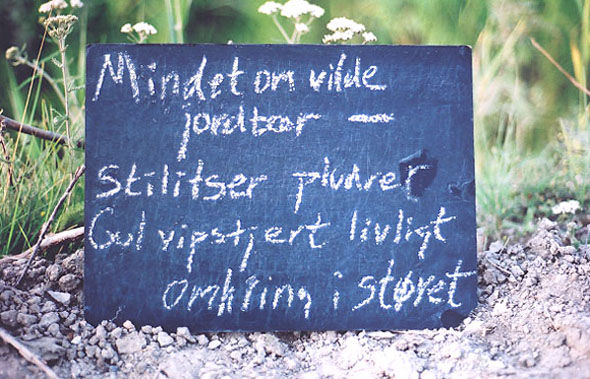 Mindet om vilde
jordbær —
Stilitser pludrer
Gul vipstjert livligt
omkring i støvet